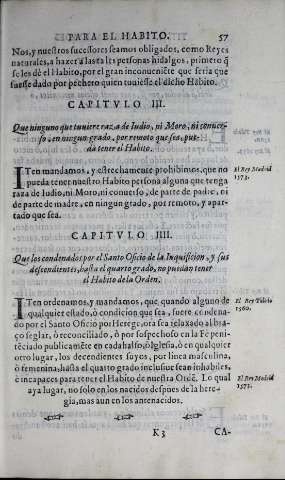 PARA EL HABITO. 57
Nos, y nuestros successores seamos obligados, como Reyes
naturales, a hazer a las tales personas hidalgos, primero q̃
se les dè el Habito, por el gran inconueniẽte que seria que
fuesse dado por pechero quien tuuiesse el dicho Habito.
CAPITVLO III.
Que ninguno que tuuiere raza de Iudio, ni Moro, ni conuer-
so, en ningun grado, por remoto que sea, pue-
da tener el Habito.
ITen mandamos, y estrechamente prohibimos, que no
pueda tener nuestro Habito persona alguna que tenga
raza de Iudio, ni Moro, ni conuerso, de parte de padre, ni
de parte de madre, en ningun grado, por remoto, y apar-
tado que sea.
El Rey Madrid
1573.
CAPITVLO IIII.
Que los condenados por el Santo Oficio de la Inquisicion, y sus
descendientes, hasta el quarto grado, no puedan tener
el Habito de la Orden.
ITen ordenamos, y mandamos, que quando alguno de
qualquier estado, ò condicion que sea, fuere condena-
do por el Santo Oficio por Herege, ora sea relaxado al bra-
ço seglar, ò reconciliado, ò por sospechoso en la Fè peni-
tẽciado publicamẽte en cadahalso, ò Iglesia, ò en qualquier
otro lugar, los decendientes suyos, por linea masculina,
ò femenina, hasta el quarto grado inclusiue sean inhabiles,
è incapaces para tener el Habito de nuestra Ordẽ. Lo qual
aya lugar, no solo en los nacidos despues de la here-
gia, mas aun en los antenacidos.
El Rey Toledo
1560.
El Rey Madrid
1573.
K3 CA-